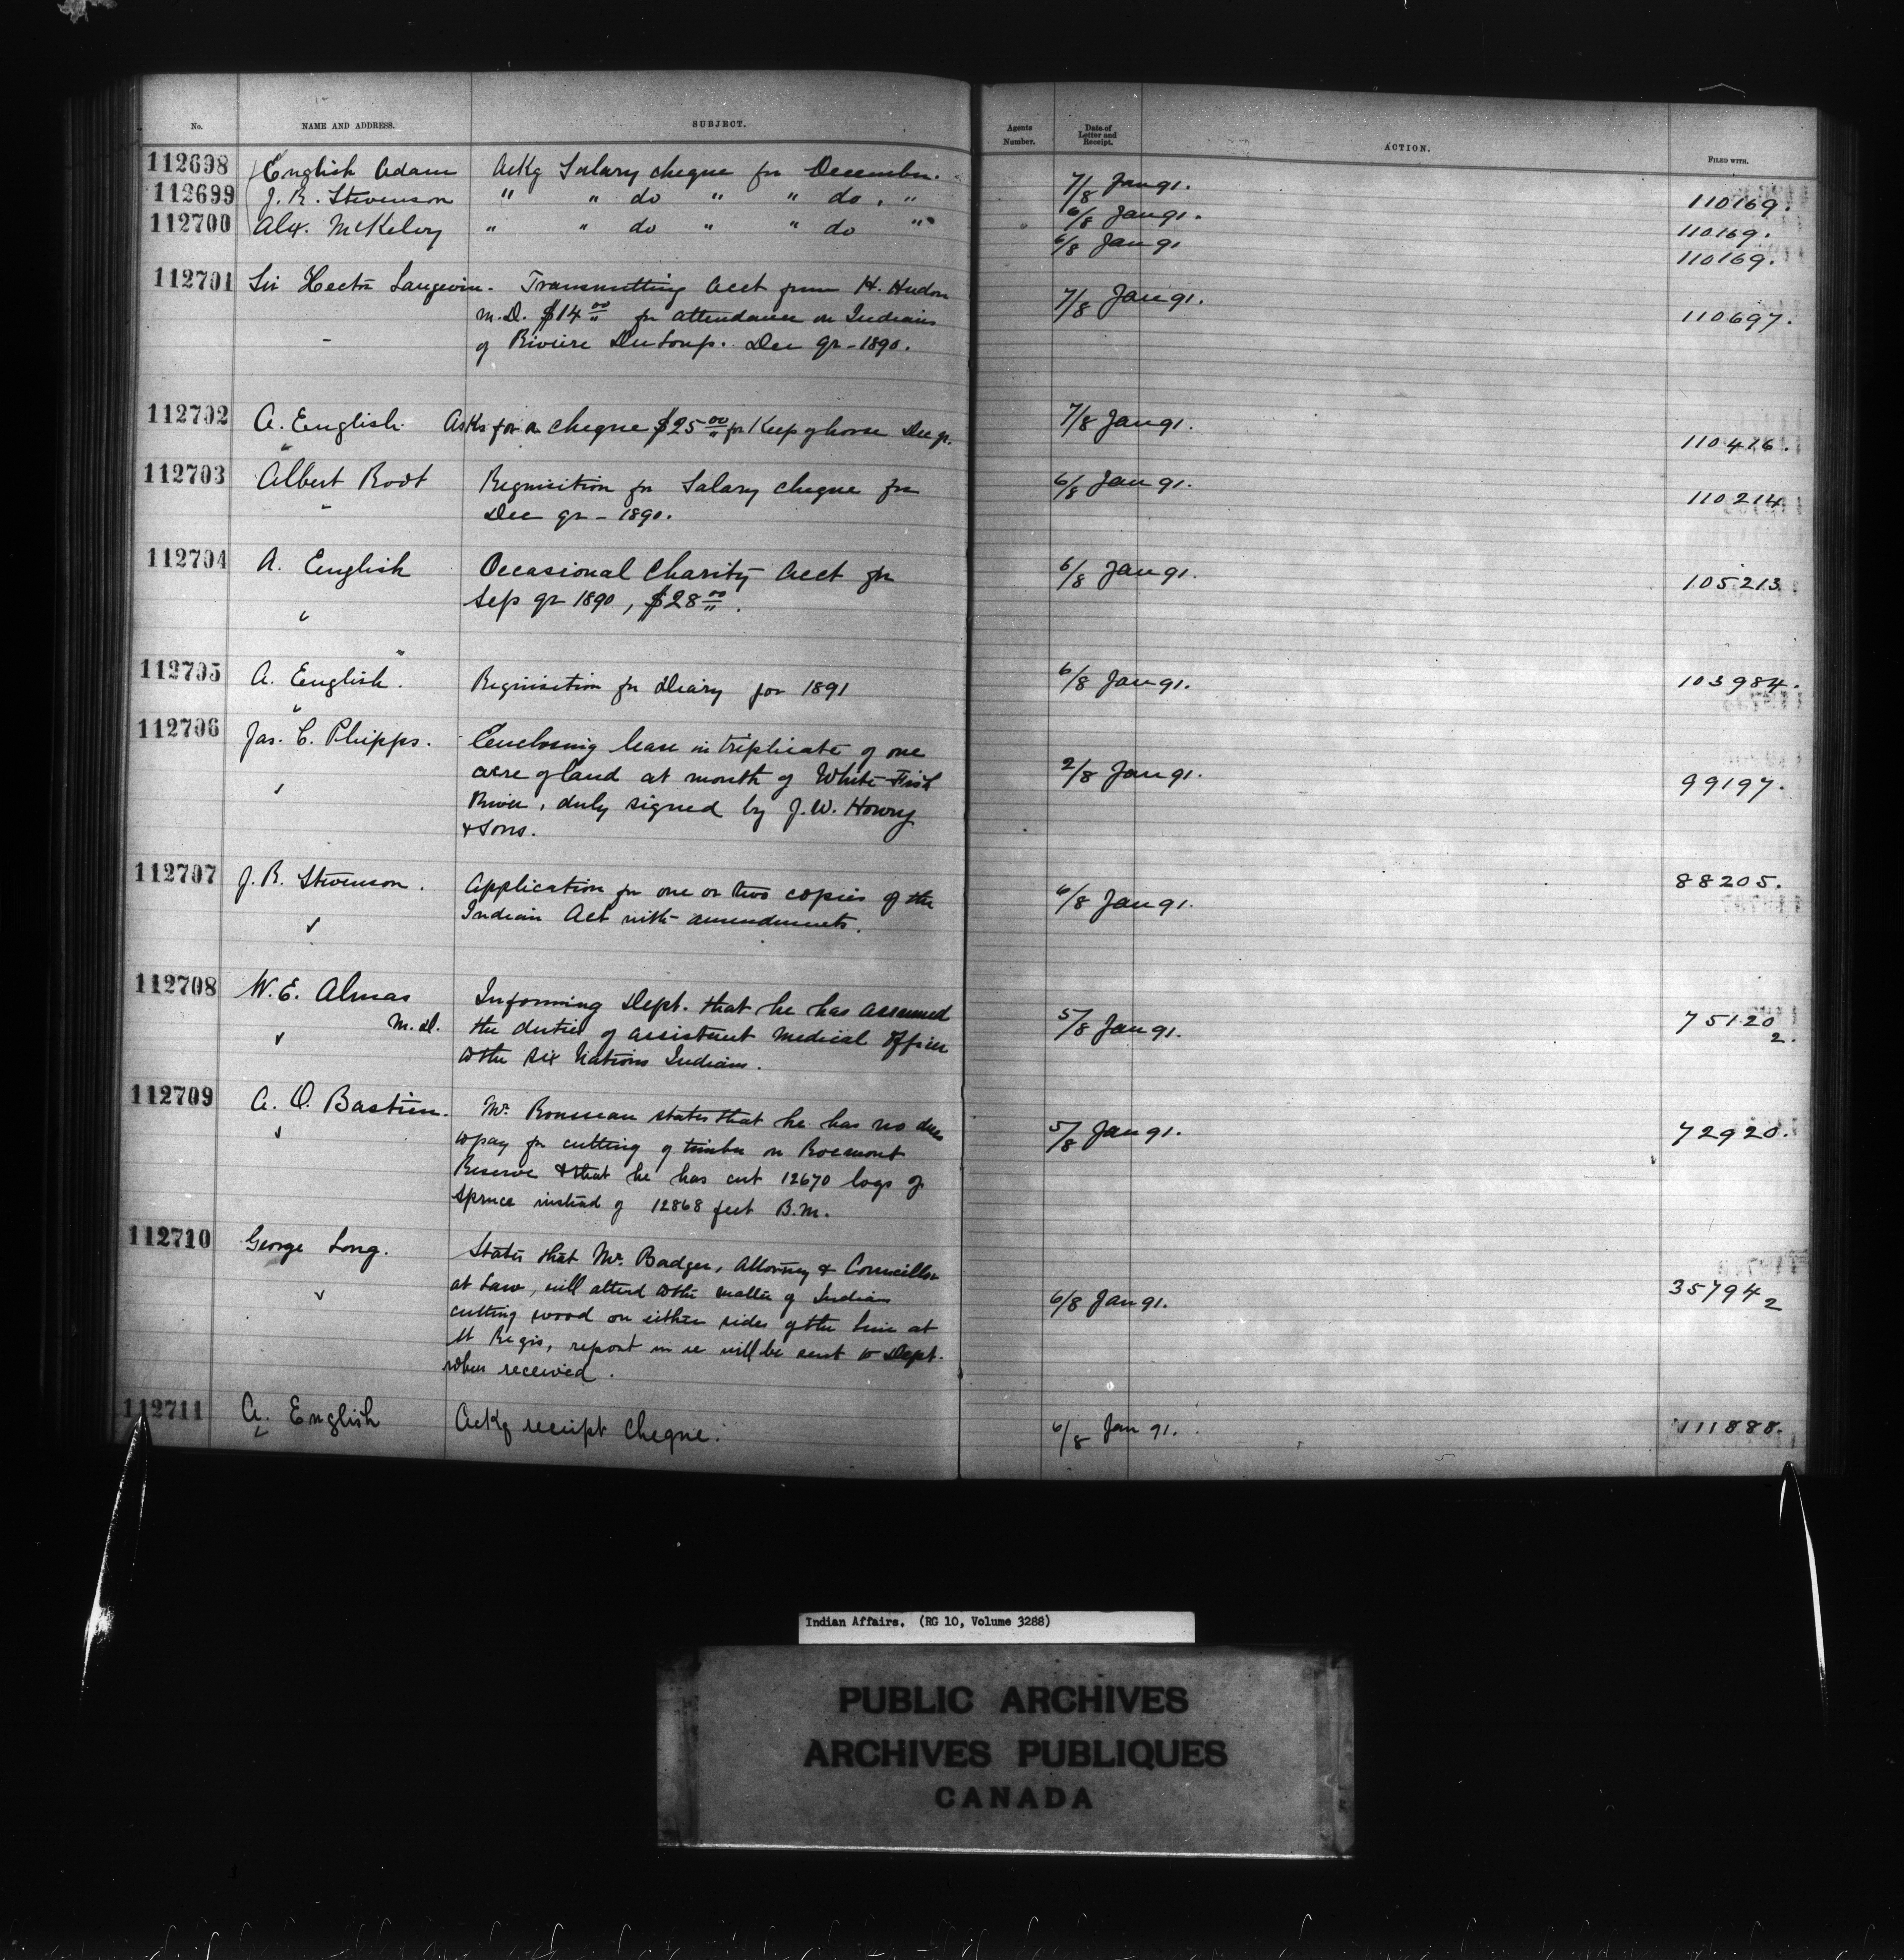 No. NAME AND ADDRESS. SUBJECT. Agents Number. Date of Letter and Receipt. ACTION. FILED WITH.
112698 English Adam Ackg Salary cheque for December. 7/8 Jan 91. 110169.
112699 J. R. Stevenson " " do " " do . " 6/8 Jan 91. 110169.
112700 Alex. McKelvy " " do " " do " 6/8 Jan 91 110169.
112701 Sir Hector Langevin. Transmitting acct from H. Hudon 7/8 Jan 91. 110697.
M.D. $14 00 for attendance on Indians
of Riviere Du Loup. Dec qr - 1890.
112702 A. English. Asks for a cheque $25 00 for Keep of horse Dec qr. 7/8 Jan 91. 110416.
112703 Albert Root Requisition for Salary cheque for 6/8 Jan 91. 110214
Dec qr - 1890.
112704 A. English Occasional Charity acct for 6/8 Jan 91. 105213
Sep qr 1890, $28 00.
112705 A. English. Requisition for Diary for 1891 6/8 Jan 91. 103984.
112706 Jas. C. Phipps. Enclosing lease in triplicate of one
acre of land at mouth of White Fish 2/8 Jan 91. 99197.
River, duly signed by J. W. Howry
& Sons.
112707 J. R. Stevenson. Application for one or two copies of the 6/8 Jan 91. 88205.
Indian Act with amendments.
112708 W. E. Almas Informing Dept. that he has assumed
M.D. the duties of assistant Medical Officer 5/8 Jan 91. 75120 2.
to the Six Nations Indians.
112709 A. O. Bastien. Mr. Rousseau states that he has no dues 5/8 Jan 91. 72920.
to pay for cutting of timber on Rocmont
Reserve & that he has cut 12670 logs of
Spruce instead of 12868 feet B.M.
112710 George Long. States that Mr. Badger, Attorney & Councillor
at Law, will attend to the matter of Indians 6/8 Jan 91. 35794 2
cutting wood on either sides of the line at
St Regis, report in re will be sent to Dept.
when received.
112711 A. English Ackg receipt cheque. 6/8 Jan 91. 111888.
Indian Affairs. (RG 10, Volume 3288)
PUBLIC ARCHIVES
ARCHIVES PUBLIQUES
CANADA